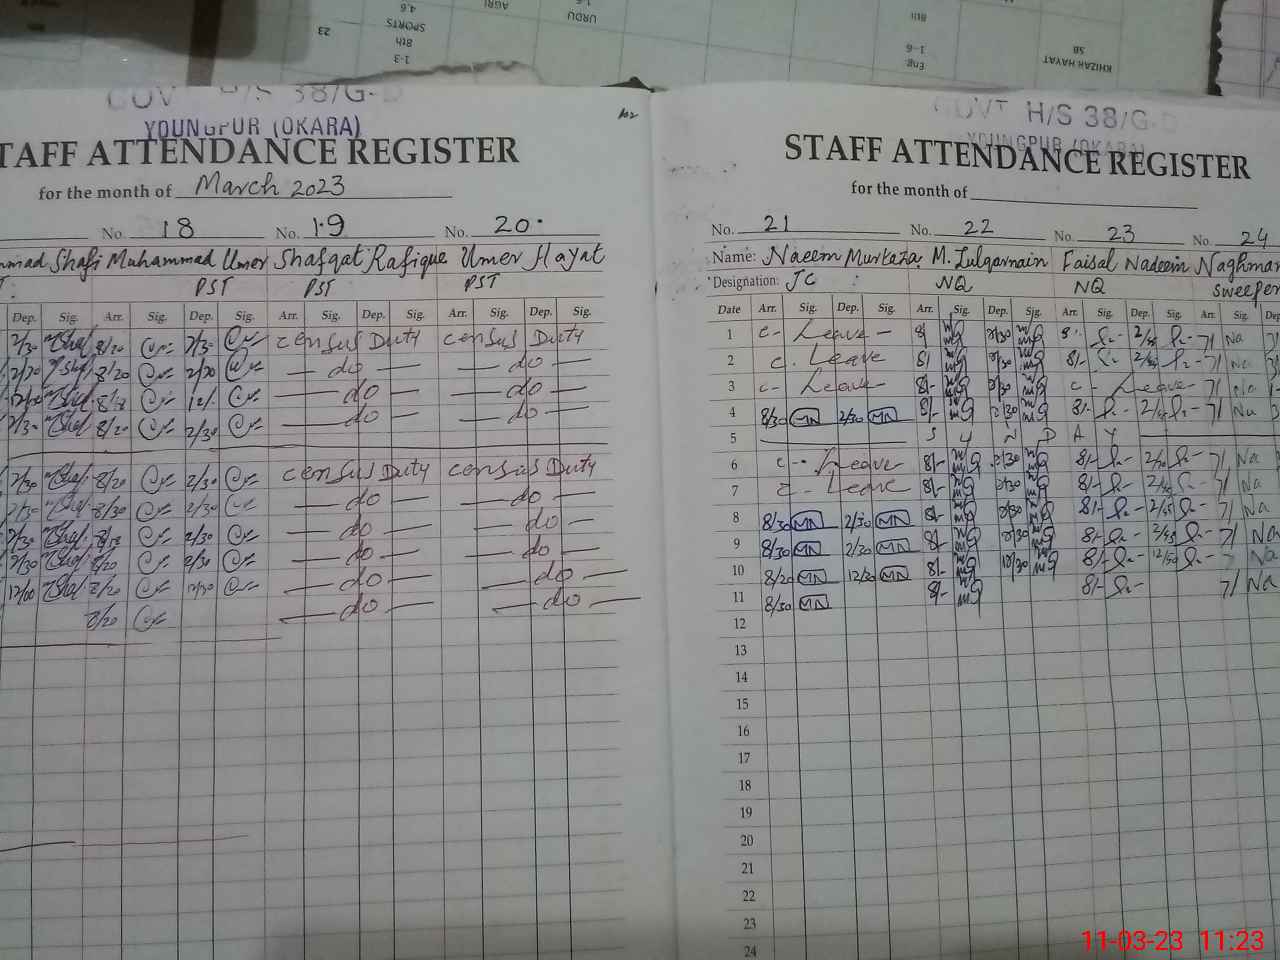 URDU
AGRI
4,6
SPORTS
8th
1-3
23
8th
1-6
Eng
5B
KHIZAR HAYAT
GOVT H/S 38/G-D
YOUNGPUR (OKARA)
102
TAFF ATTENDANCE REGISTER
for the month of March 2023
No. 18 No. 19 No. 20.
mmad Shafi Muhammad Umer Shafqat Rafique Umer Hayat
PST PST PST
Dep. Sig. Arr. Sig. Dep. Sig. Arr. Sig. Dep. Sig. Arr. Sig. Dep. Sig.
8/20 census Duty census Duty
2/30 8/20 2/30 — do — — do —
— do — — do —
8/20 2/30 — do — — do —
2/30 8/20 2/30 census Duty census Duty
8/30 2/30 — do — — do —
2/30 2/30 — do — — do —
2/30 8/20 2/30 — do — — do —
12/00 8/20 12/30 — do — — do —
8/20 — do — — do —
GOVT H/S 38/G-D
YOUNGPUR (OKARA)
STAFF ATTENDANCE REGISTER
for the month of
No. 21 No. 22 No. 23 No. 24
Name: Naeem Murtaza M. Zulqarnain Faisal Nadeem Naghma
Designation: JC : NQ NQ sweeper
Date Arr. Sig. Dep. Sig. Arr. Sig. Dep. Sig. Arr. Sig. Dep. Sig. Arr. Sig. De
1 c- Leave - 8/- 2/30 8- 7/ Na
2 c. Leave 8/- 2/30 8/- 7/ Na
3 c- Leave- 8/- 2/30 c - Leave- 7/ Na
4 8/30 MN 2/30 MN 8/- 2/30 8/- 7/ Na
5 S U N D A Y
6 c - Leave 8/- 2/30 8/- 7/ Na
7 c - Leave 8/- 2/30 8/- 7/ Na
8 8/30 MN 2/30 MN 8/- 2/30 8/- 2/45 7/ Na
9 8/30 MN 2/30 MN 8/- 2/30 8/- 2/45 7/ Na
10 8/20 MN 12/30 MN 8/- 12/30 8/- 12/50 7 Na
11 8/30 MN 8/- 8/- 7/ Na
12
13
14
15
16
17
18
19
20
21
22
23
24
11-03-23 11:23